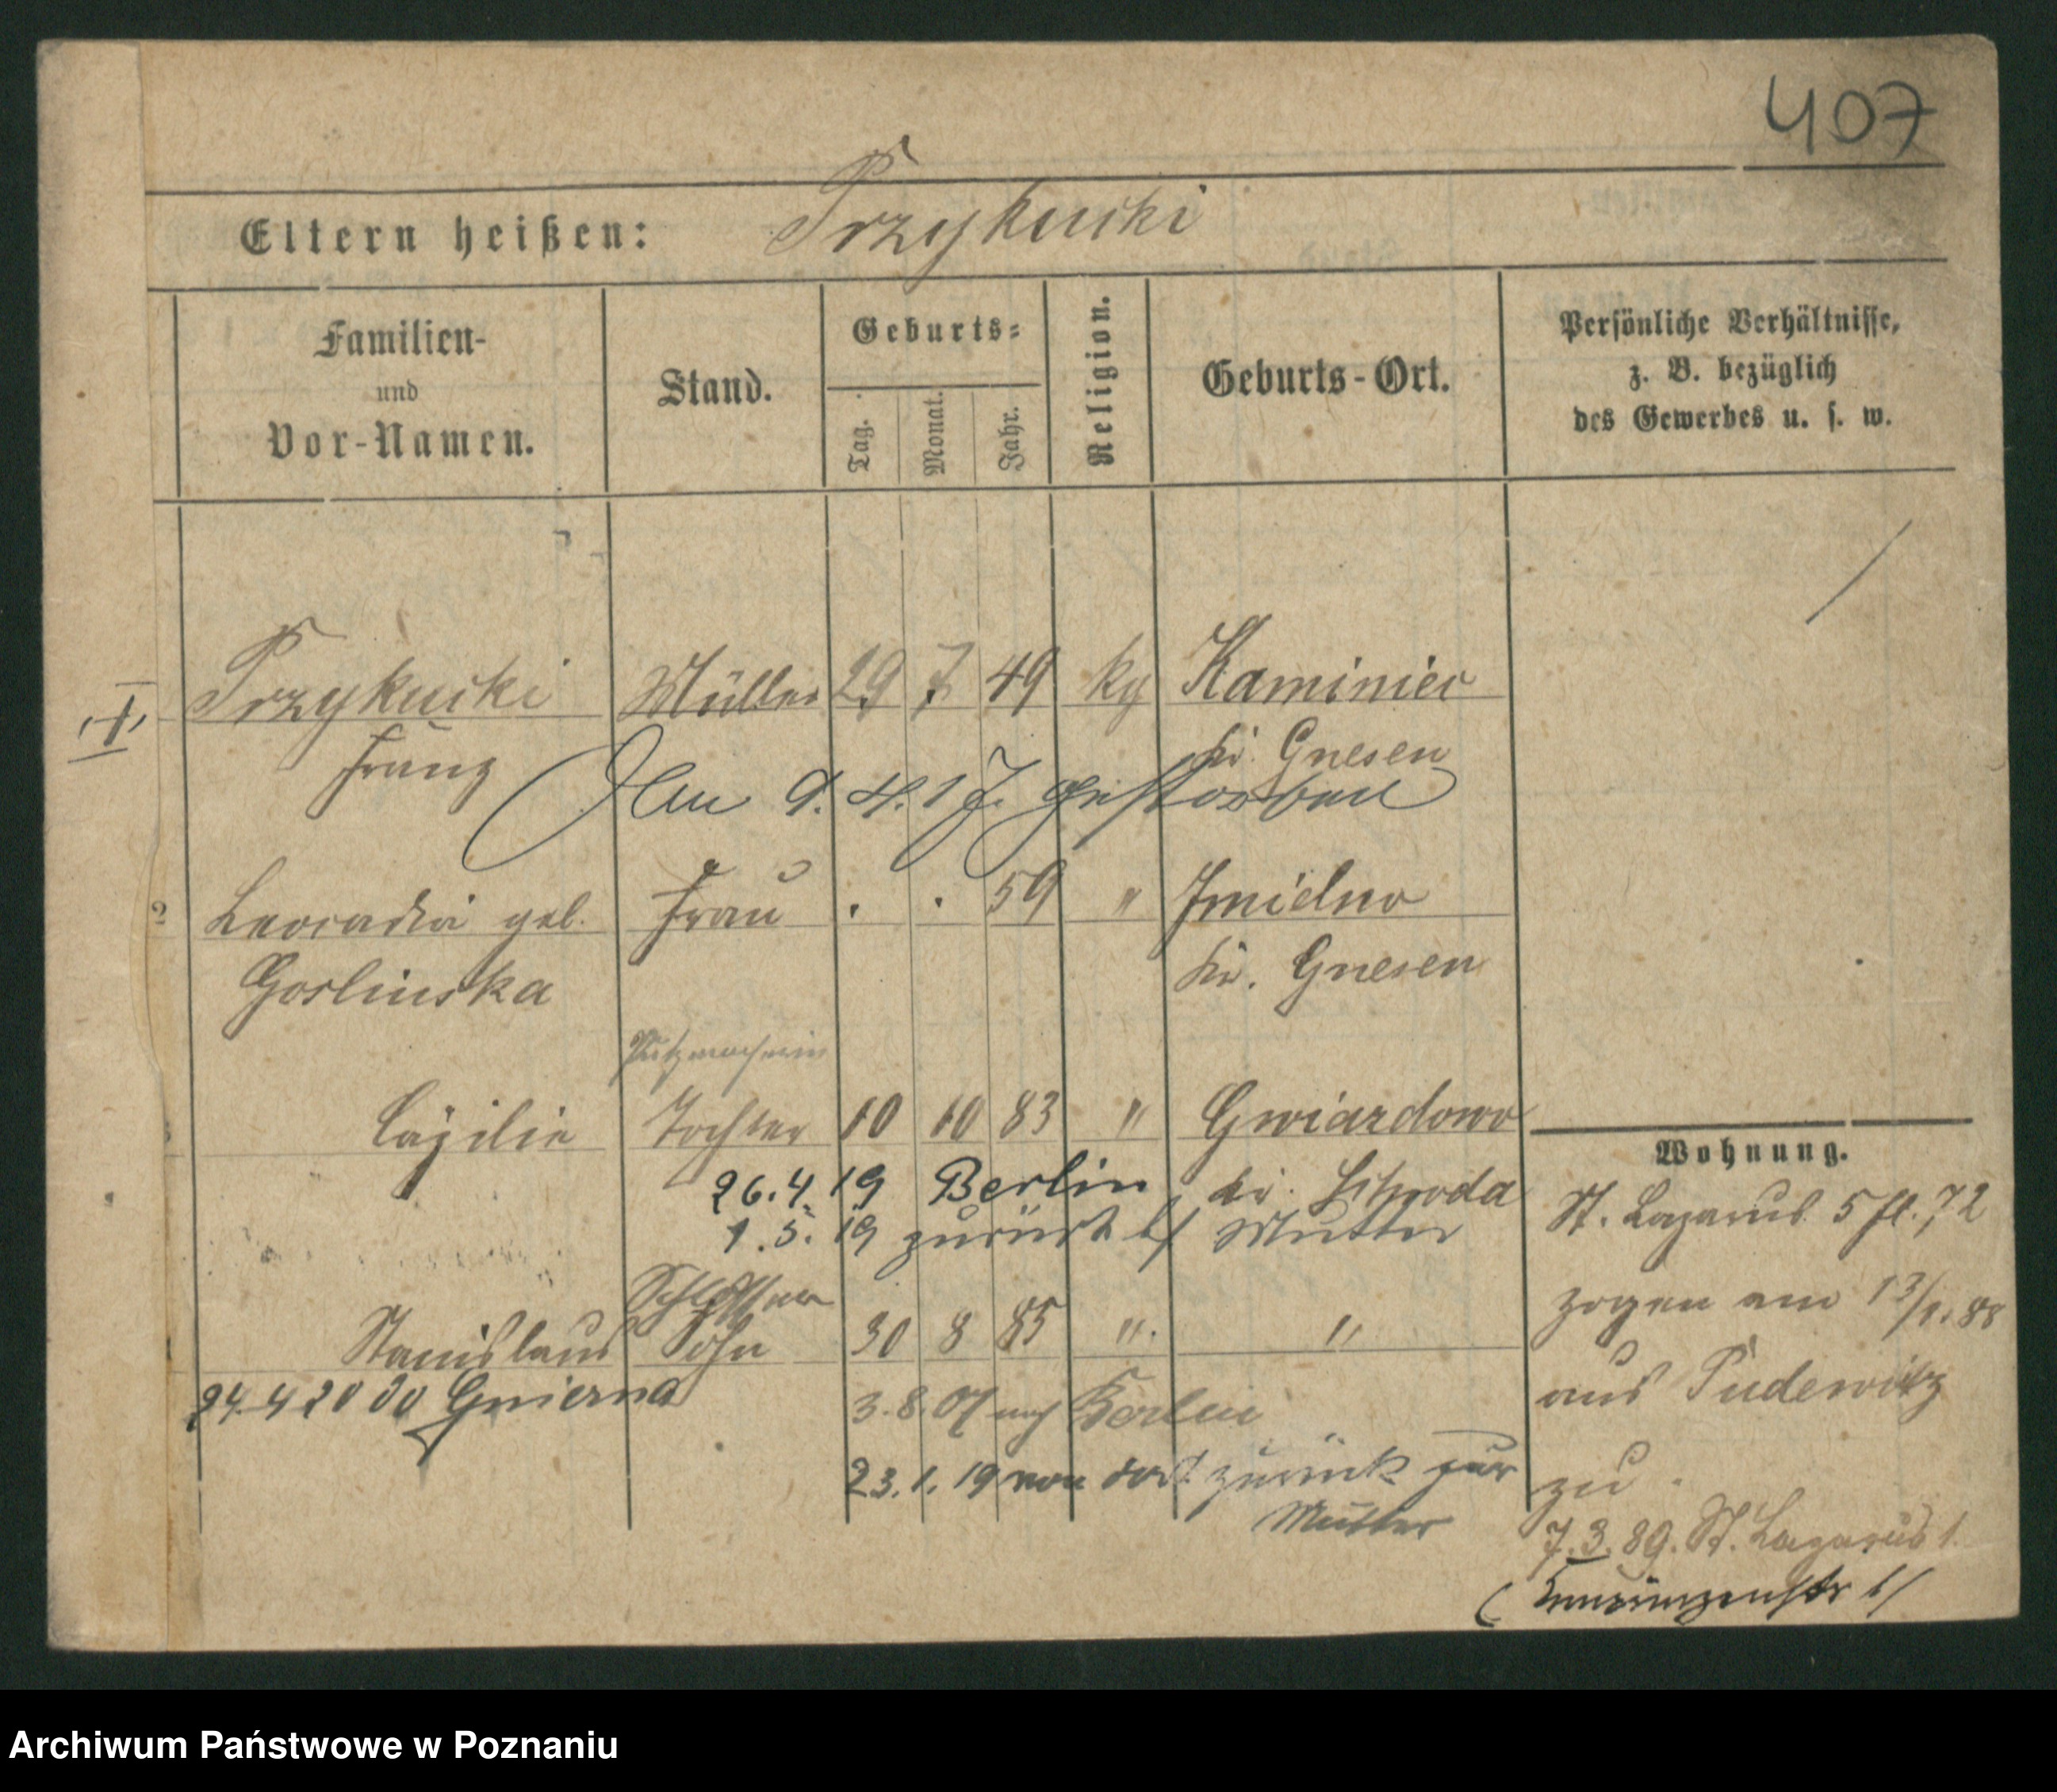 407
Eltern heißen: Przykucki
Familien- und Vor-Namen.
Stand.
Geburts-
Tag. Monat. Jahr.
Religion.
Geburts-Ort.
Persönliche Verhältnisse,
z. B. bezüglich
des Gewerbes u. s. w.
Przykucki Müller 29 7 49 kg Kaminiec
Franz Kr. Gnesen
Am 9. 4. 17. gestorben
2 Leocadia geb. Frau . . 59 " Imielno
Goslinska Kr. Gnesen
Putzmacherin
Cäzilie Tochter 10 10 83 " Gwiazdowo
26. 4. 19 Berlin Kr. Schroda
1. 5. 19 zurück b/ Mutter
Schlosser
Stanislaus Sohn 30 8 85 " "
24. 4 20 Gnierna
3. 8. 07 nach Berlin
23. 1. 19 von dort zurück zur
Mutter
Wohnung.
St. Lazarus 5 fl. 72
zogen am 13/1. 88
aus Pudewitz
zu
7. 3. 89. St. Lazarus 1.
Archiwum Państwowe w Poznaniu